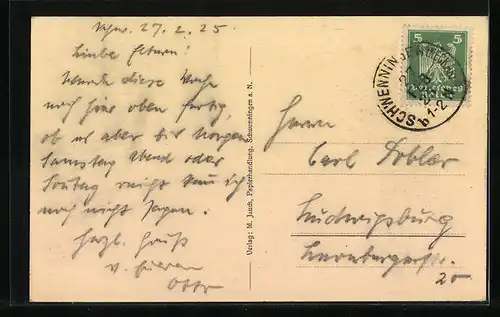 Schw. 27.2.25.
Liebe Eltern!
Werde diese Woche
noch hier oben fertig,
ob es aber bis Morgen
Samstag Abend oder
Sontag reicht kan ich
noch nicht sagen.
Herzl. Gruß
v. Eurem
Otto
Verlag: M. Jauch, Papierhandlung, Schwenningen a. N.
5 5
Deutsches Reich
SCHWENNINGEN
Herrn
Carl Dobler
Ludwigsburg
20